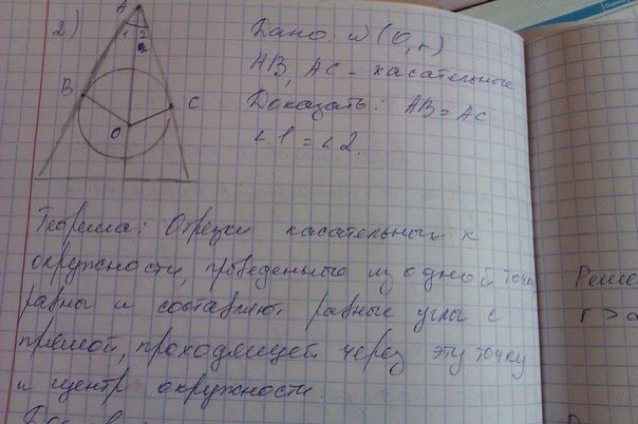 2)
A
1 2
B
C
O
Дано: ω(O, r)
AB, AC - касательные
Доказать: AB = AC
∠1 = ∠2.
Теорема: Отрезки касательных к
окружности, проведенные из одной точки,
равны и составляют равные углы с
прямой, проходящей через эту точку
и центр окружности.
Реше
r >